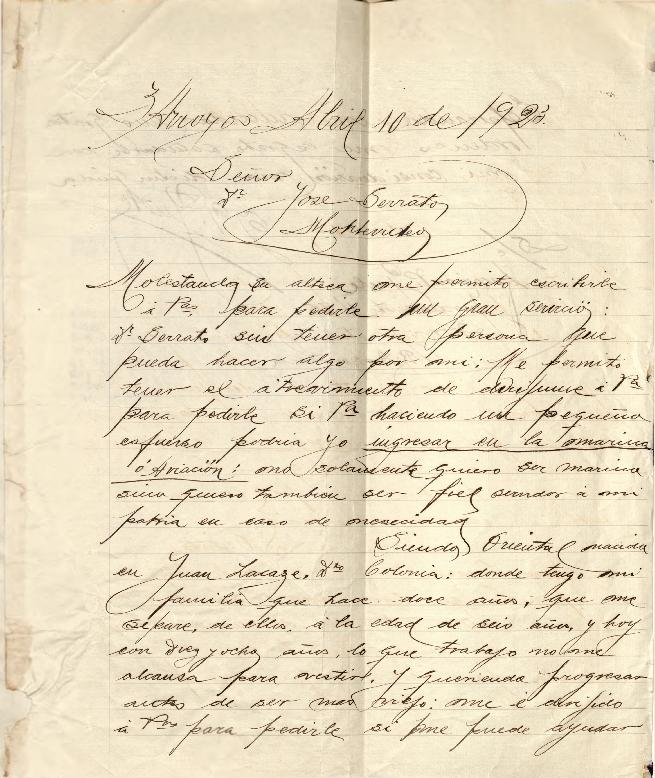 3 Arroyos Abril 10 de 1923
Señor
Dr José Serrato
Montevideo
Molestando su alteza me permito escribirle
á Vd, para pedirle un gran servicio:
Dr Serrato sin tener otra persona que
pueda hacer algo por mi; Me permito
tener el atrevimiento de dirijirme á Vd
para pedirle si Vd haciendo un pequeño
esfuerzo podria yo ingresar en la marina
ó Aviación: no solamente quiero ser marino
sino quiero tambien ser fiel servidor á mi
patria en caso de nesecidad
Siendo Oriental nacido
en Juan Lacaze, Dto Colonia: donde tengo mi
familia que hace doce años, que me
separe, de ellos, á la edad de seis años, y hoy
con diez y ocho años, lo que trabajo no me
alcansa para vestir, y queriendo progresar
antes de ser mas viejo; me é dirijido
á Vd para pedirle si me puede ayudar